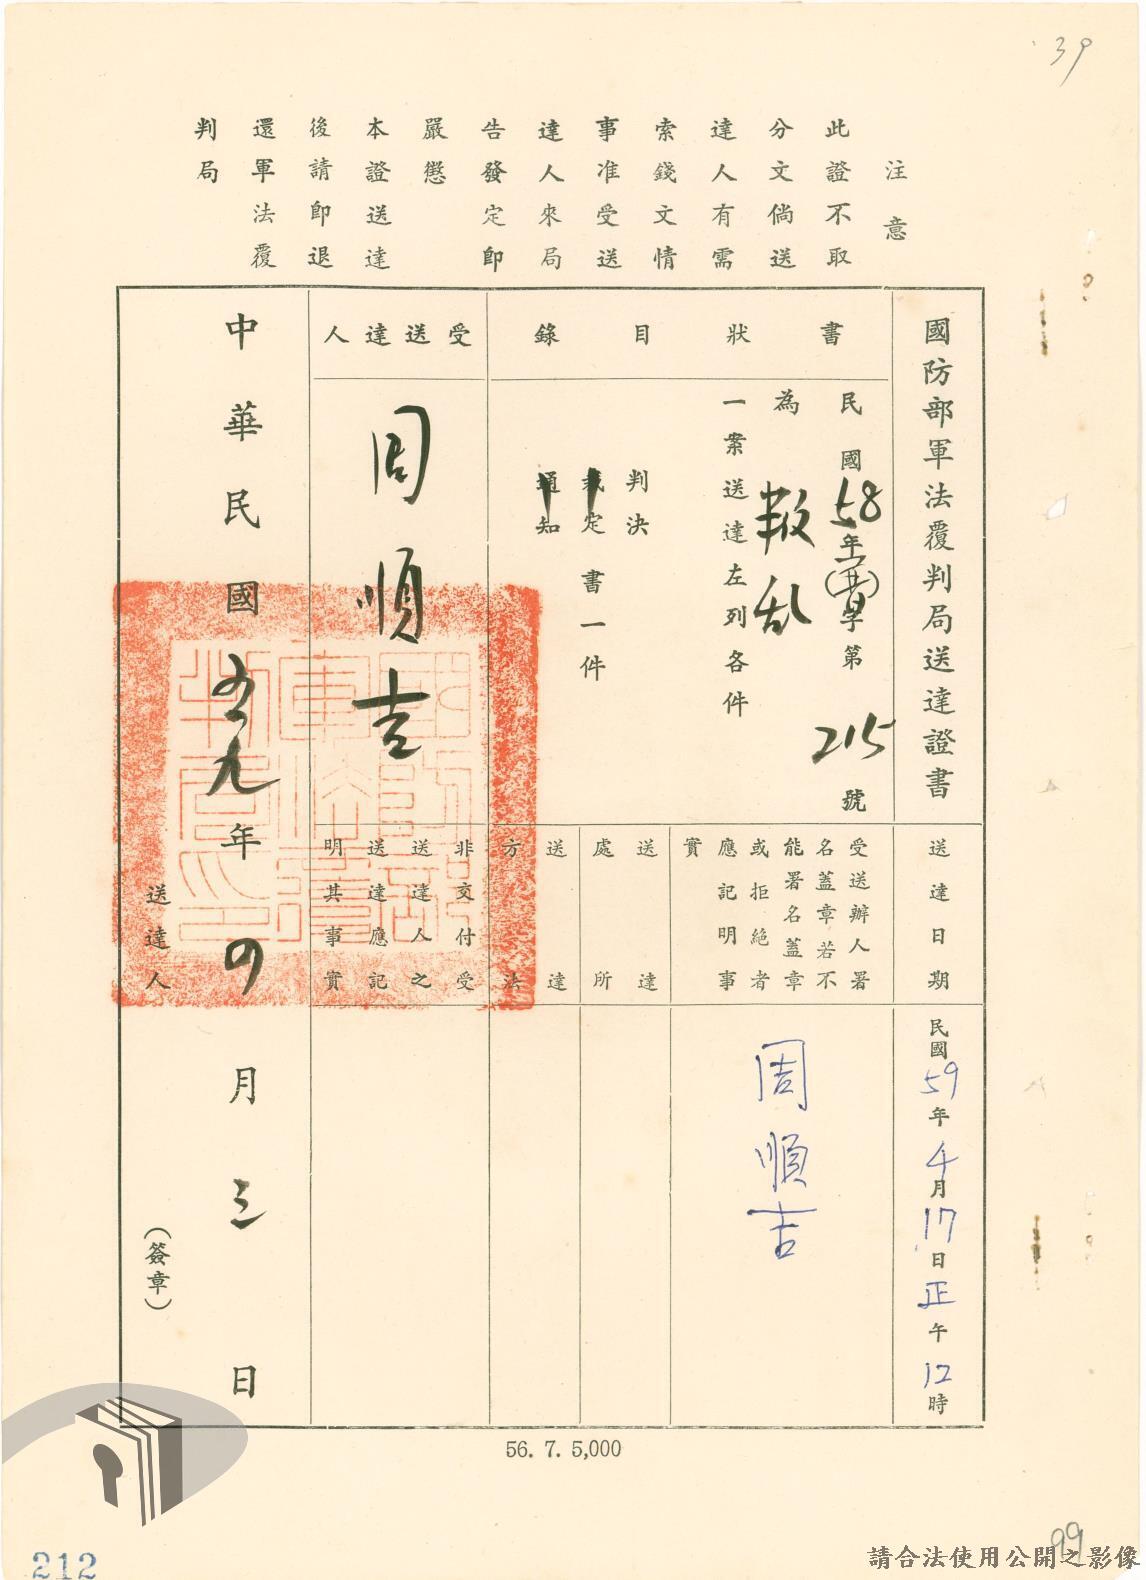 39
注意
此證不取
分文倘送
達人有需
索錢文情
事准受送
達人來局
告發定即
嚴懲
本證送達
後請即退
還軍法覆
判局
國防部軍法覆判局送達證書
書狀目錄
民國58年 字第215號
為叛乱
一案送達左列各件
判決
裁定書一件
通知
受送達人
周順吉
送達日期
民國59年4月17日正午12時
受送辦人署
名蓋章若不
能署名蓋章
或拒絕者
應記明事
實
周順吉
送達
處所
送達
方法
非交付受
送達人之
送達應記
明其事實
中華民國五九年四月三日
送達人
(簽章)
56. 7. 5,000
212
99
請合法使用公開之影像